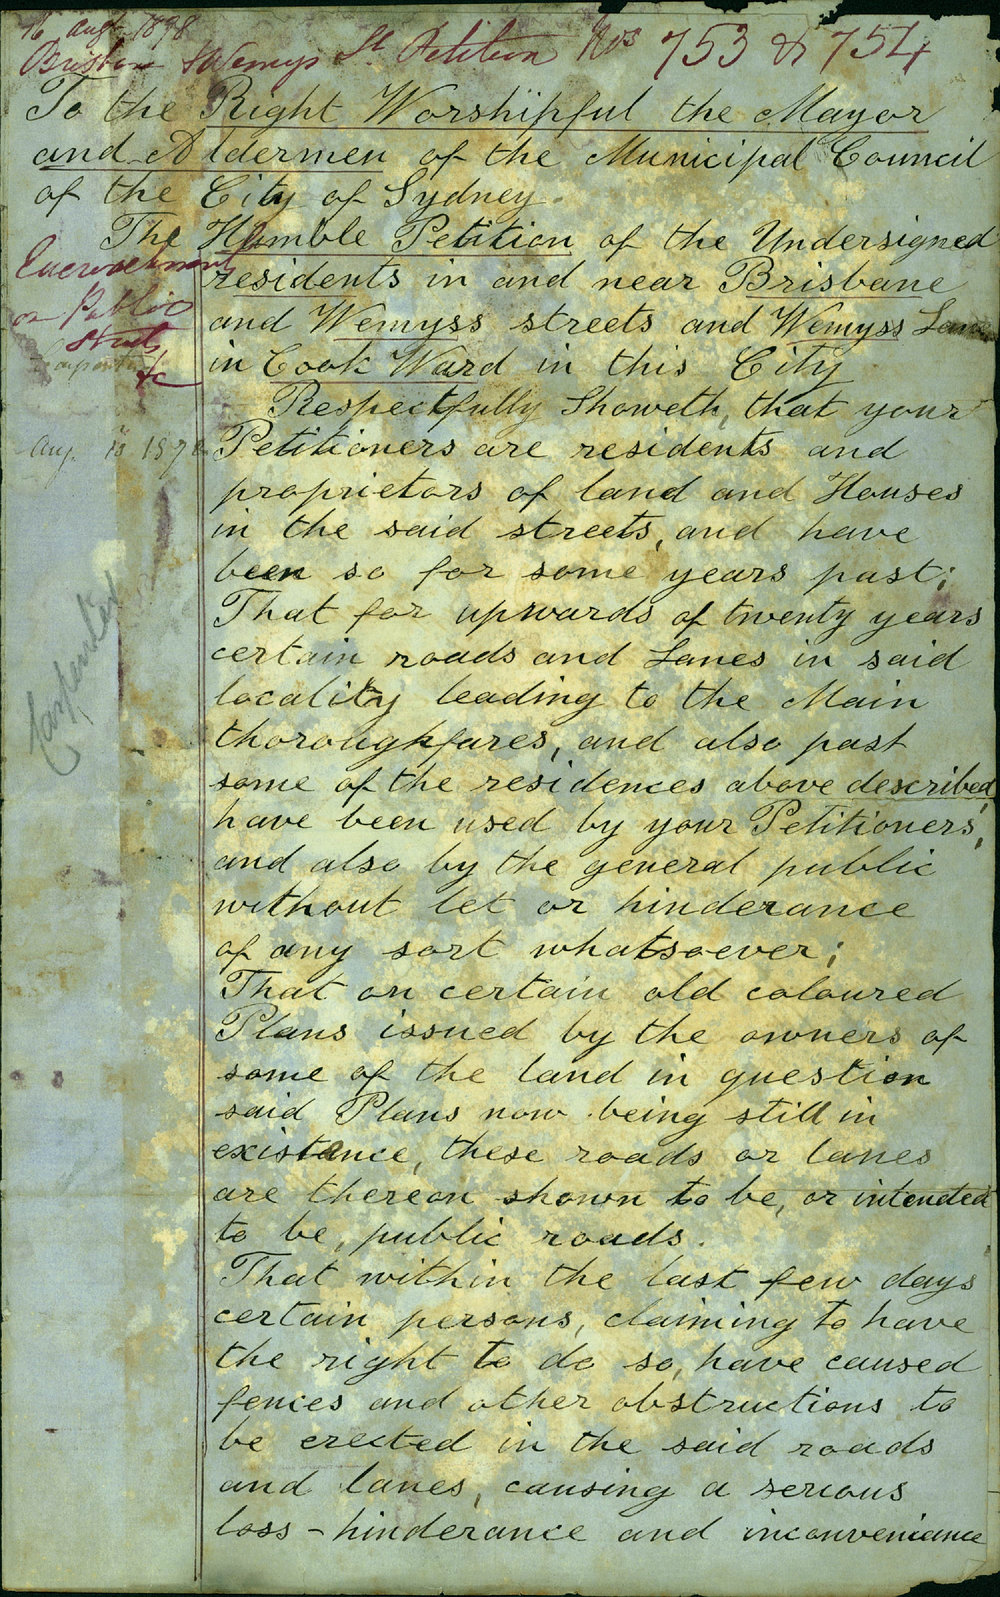 16 Augt 1878
Brisbane & Wemyss St Petition Nos 753 & 754
To the Right Worshipful the Mayor
and Aldermen of the Municipal Council
of the City of Sydney.
The Humble Petition of the Undersigned
residents in and near Brisbane
and Wemyss streets and Wemyss Lane
in Cook Ward in this City
Encroachment
on Public
Streets
&c
Aug. 15 1878
Carpenter
Respectfully Showeth, that your
Petitioners are residents and
proprietors of land and Houses
in the said streets, and have
been so for some years past;
That for upwards of twenty years
certain roads and Lanes in said
locality leading to the Main
thoroughfares, and also past
some of the residences above described,
have been used by your Petitioners,
and also by the general public
without let or hinderance
of any sort whatsoever;
That on certain old coloured
Plans issued by the owners of
some of the land in question
said Plans now being still in
existance, these roads or lanes
are thereon shown to be, or intended
to be, public roads.
That within the last few days
certain persons, claiming to have
the right to do so, have caused
fences and other obstructions to
be erected in the said roads
and lanes, causing a serious
loss - hinderance and inconveniance